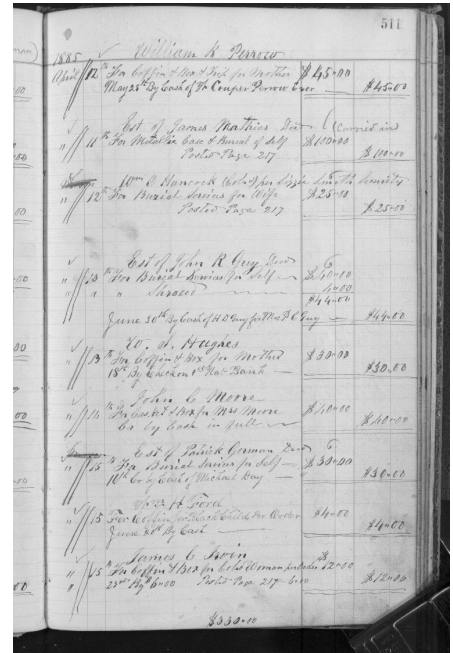 511
1885 William K. Perrow
April 12th For Coffin & Box & Trip for Mother $45.00
May 25th By Cash of Cooper Perrow $45.00
Est of James Mathies Decd (Carried in)
" 11th For Metallic Case & Burial of Self $100.00
Posted Page 217 $100.00
Wm O. Hancock (Cold) per Lizzie Smith Security
12th For Burial Services for Wife $25.00
Posted Page 217 $25.00
Est of John R Guy Decd
" 13th For Burial Services for Self $40.00
" " " Shroud 4.00
$44.00
June 30th By Cash of H O Guy for Guy $44.00
W. S. Hughes
" 13th For Coffin & Box for Mother $30.00
18th By Check on 1st Nat Bank $30.00
John C Moore
" 14th For Casket & Box for Mrs Moore $40.00
Cr by Cash in full $40.00
Est of Patrick Gorman Decd
" 15th For Burial Services for Self $30.00
18th Cr by Cash of Michael Day $30.00
H Ford
" 15 For Coffin for Black Child Per Order $4.00
June By Cash $4.00
James C Irvin
" 15th For Coffin & Box for Cold Woman per Order $12.00
" 23rd By 6.00 Posted Page 217 6.00 $12.00
$330.00